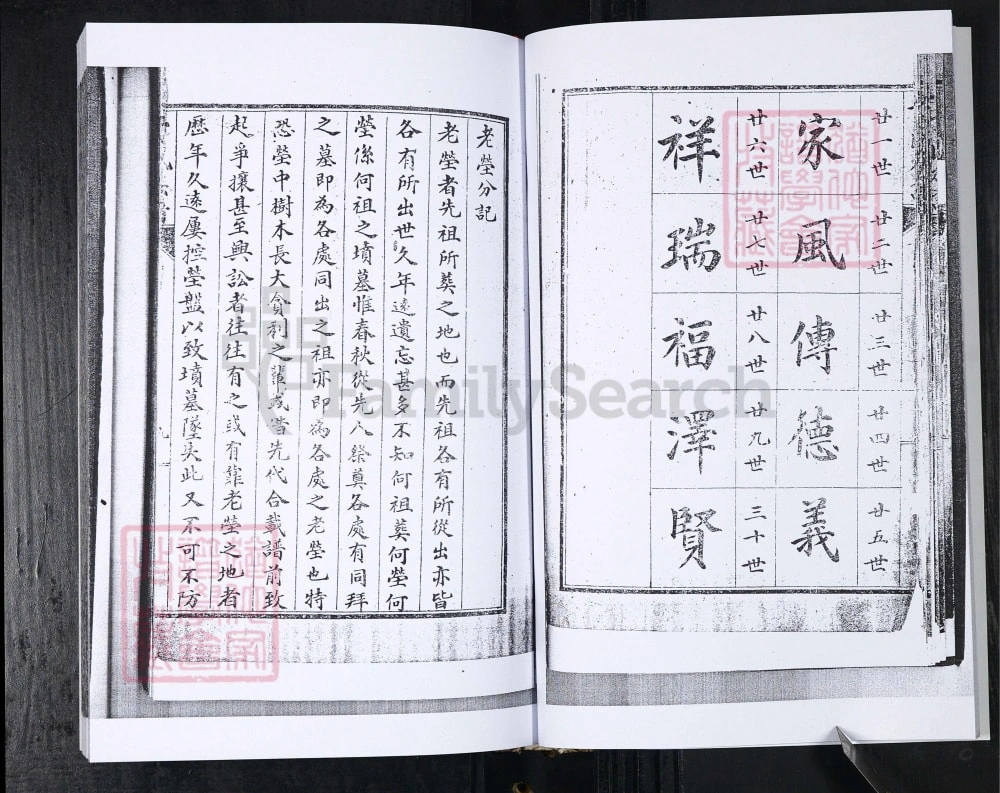 廿一世 廿二世 廿三世 廿四世 廿五世
家 風 傳 德 義
廿六世 廿七世 廿八世 廿九世 三十世
祥 瑞 福 澤 賢
老塋分記
老塋者先祖所葬之地也而先祖各有所從出亦皆
各有所出世久年遠遺忘甚多不知何祖葬何塋何
塋係何祖之墳墓惟春秋從先人祭奠各處有同拜
之墓即為各處同出之祖亦即為各處之老塋也特
恐塋中樹木長大貪利之輩或當先代合載譜前致
起爭攘甚至興訟者往往有之或有靠老塋之地者
歷年久遠屢控塋盤以致墳墓墜失此又不可不防
FamilySearch